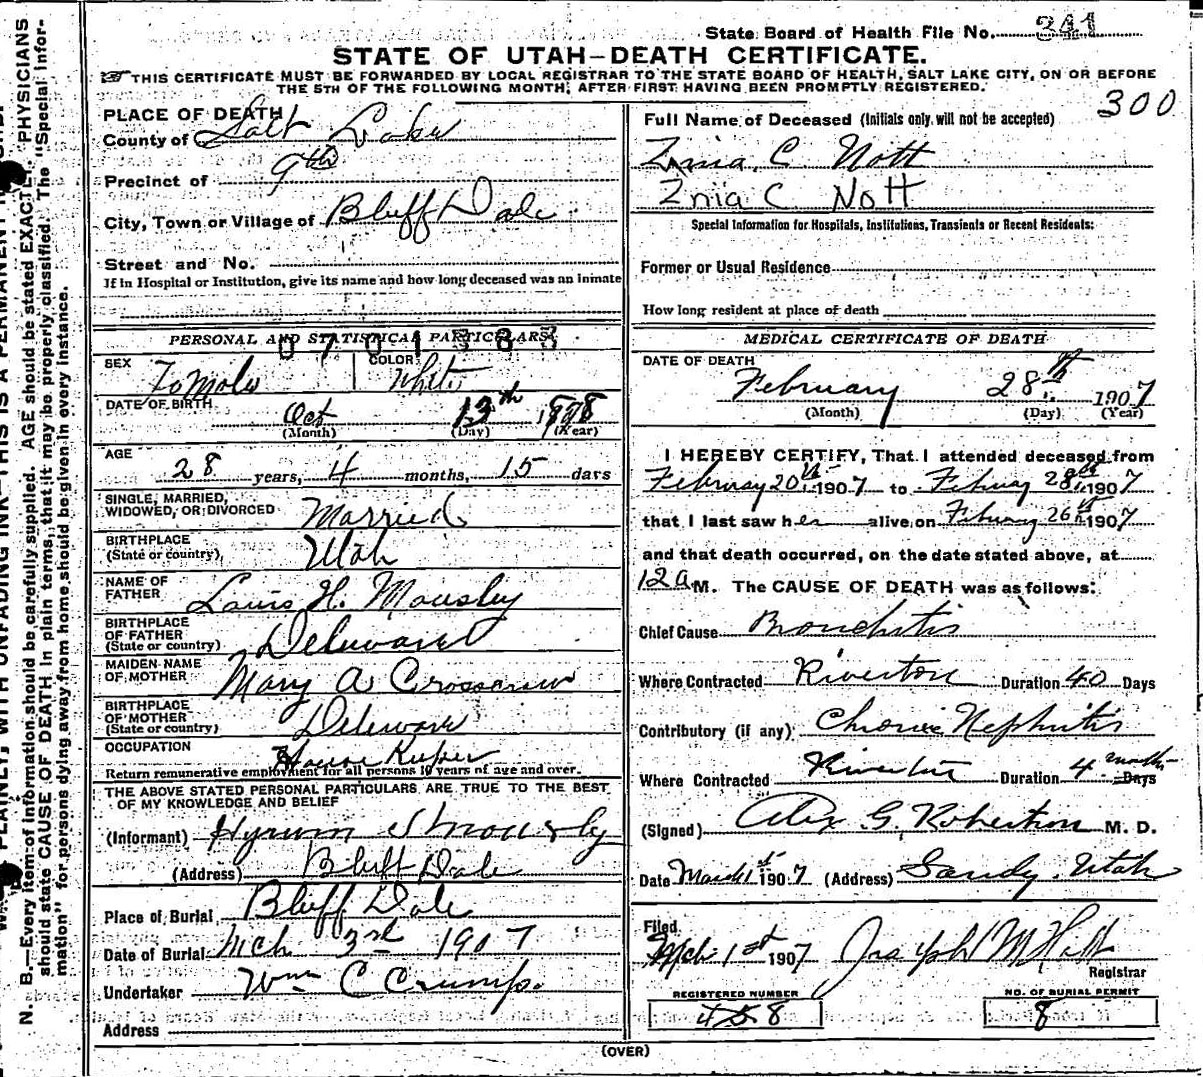 State Board of Health File No. 241
STATE OF UTAH—DEATH CERTIFICATE.
THIS CERTIFICATE MUST BE FORWARDED BY LOCAL REGISTRAR TO THE STATE BOARD OF HEALTH, SALT LAKE CITY, ON OR BEFORE
THE 5TH OF THE FOLLOWING MONTH, AFTER FIRST HAVING BEEN PROMPTLY REGISTERED.
300
PLACE OF DEATH
County of Salt Lake
Precinct of 9th
City, Town or Village of Bluff Dale
Street and No.
If in Hospital or Institution, give its name and how long deceased was an inmate
PERSONAL AND STATISTICAL PARTICULARS
SEX Female COLOR White
DATE OF BIRTH Oct 13th
(Month) (Day) (Year)
AGE 28 years, 4 months, 15 days
SINGLE, MARRIED,
WIDOWED, OR DIVORCED Married
BIRTHPLACE
(State or country) Utah
NAME OF
FATHER Louis H. Mousley
BIRTHPLACE
OF FATHER
(State or country) Deleware
MAIDEN NAME
OF MOTHER Mary A
BIRTHPLACE
OF MOTHER
(State or country) Deleware
OCCUPATION House Keeper
Return remunerative employment for all persons 10 years of age and over.
THE ABOVE STATED PERSONAL PARTICULARS ARE TRUE TO THE BEST
OF MY KNOWLEDGE AND BELIEF
(Informant)
(Address) Bluff Dale
Place of Burial Bluff Dale
Date of Burial Mch 3rd 1907
Undertaker Wm C Crump.
Address
Full Name of Deceased (Initials only will not be accepted)
Znia C Nott
Znia C Nott
Special Information for Hospitals, Institutions, Transients or Recent Residents:
Former or Usual Residence
How long resident at place of death
MEDICAL CERTIFICATE OF DEATH
DATE OF DEATH
February 28th 1907
(Month) (Day) (Year)
I HEREBY CERTIFY, That I attended deceased from
February 20th 1907 to February 28th 1907
that I last saw her alive on February 26th 1907
and that death occurred, on the date stated above, at
12 a M. The CAUSE OF DEATH was as follows:
Chief Cause Bronchitis
Where Contracted Riverton Duration 40 Days
Contributory (if any) Chronic Nephritis
Where Contracted Riverton Duration 4 months Days
(Signed) Alex G. Robertson M. D.
Date March 1st 1907 (Address) Sandy Utah
Filed
Mch 1st 1907 Joseph M Holt
Registrar
REGISTERED NUMBER
458
NO. OF BURIAL PERMIT
8
(OVER)
N. B.—Every item of information should be carefully supplied. AGE should be stated EXACTLY. PHYSICIANS
should state CAUSE OF DEATH in plain terms, that it may be properly classified. The "Special Infor-
mation" for persons dying away from home should be given in every instance.
PLAINLY, WITH UNFADING INK—THIS IS A PERMANENT